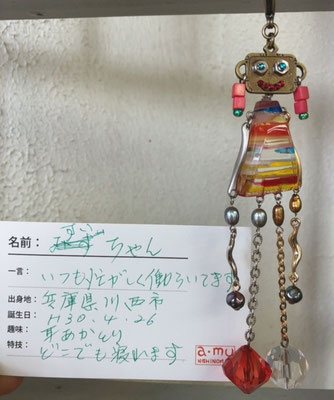 名前： ちゃん
一言： いつも忙がしく働らいてます
出身地： 兵庫県川西市
誕生日： H30.4.26
趣味： 耳あかとり
特技： どこでも寝れます
a・mu
NISHINOMIYA